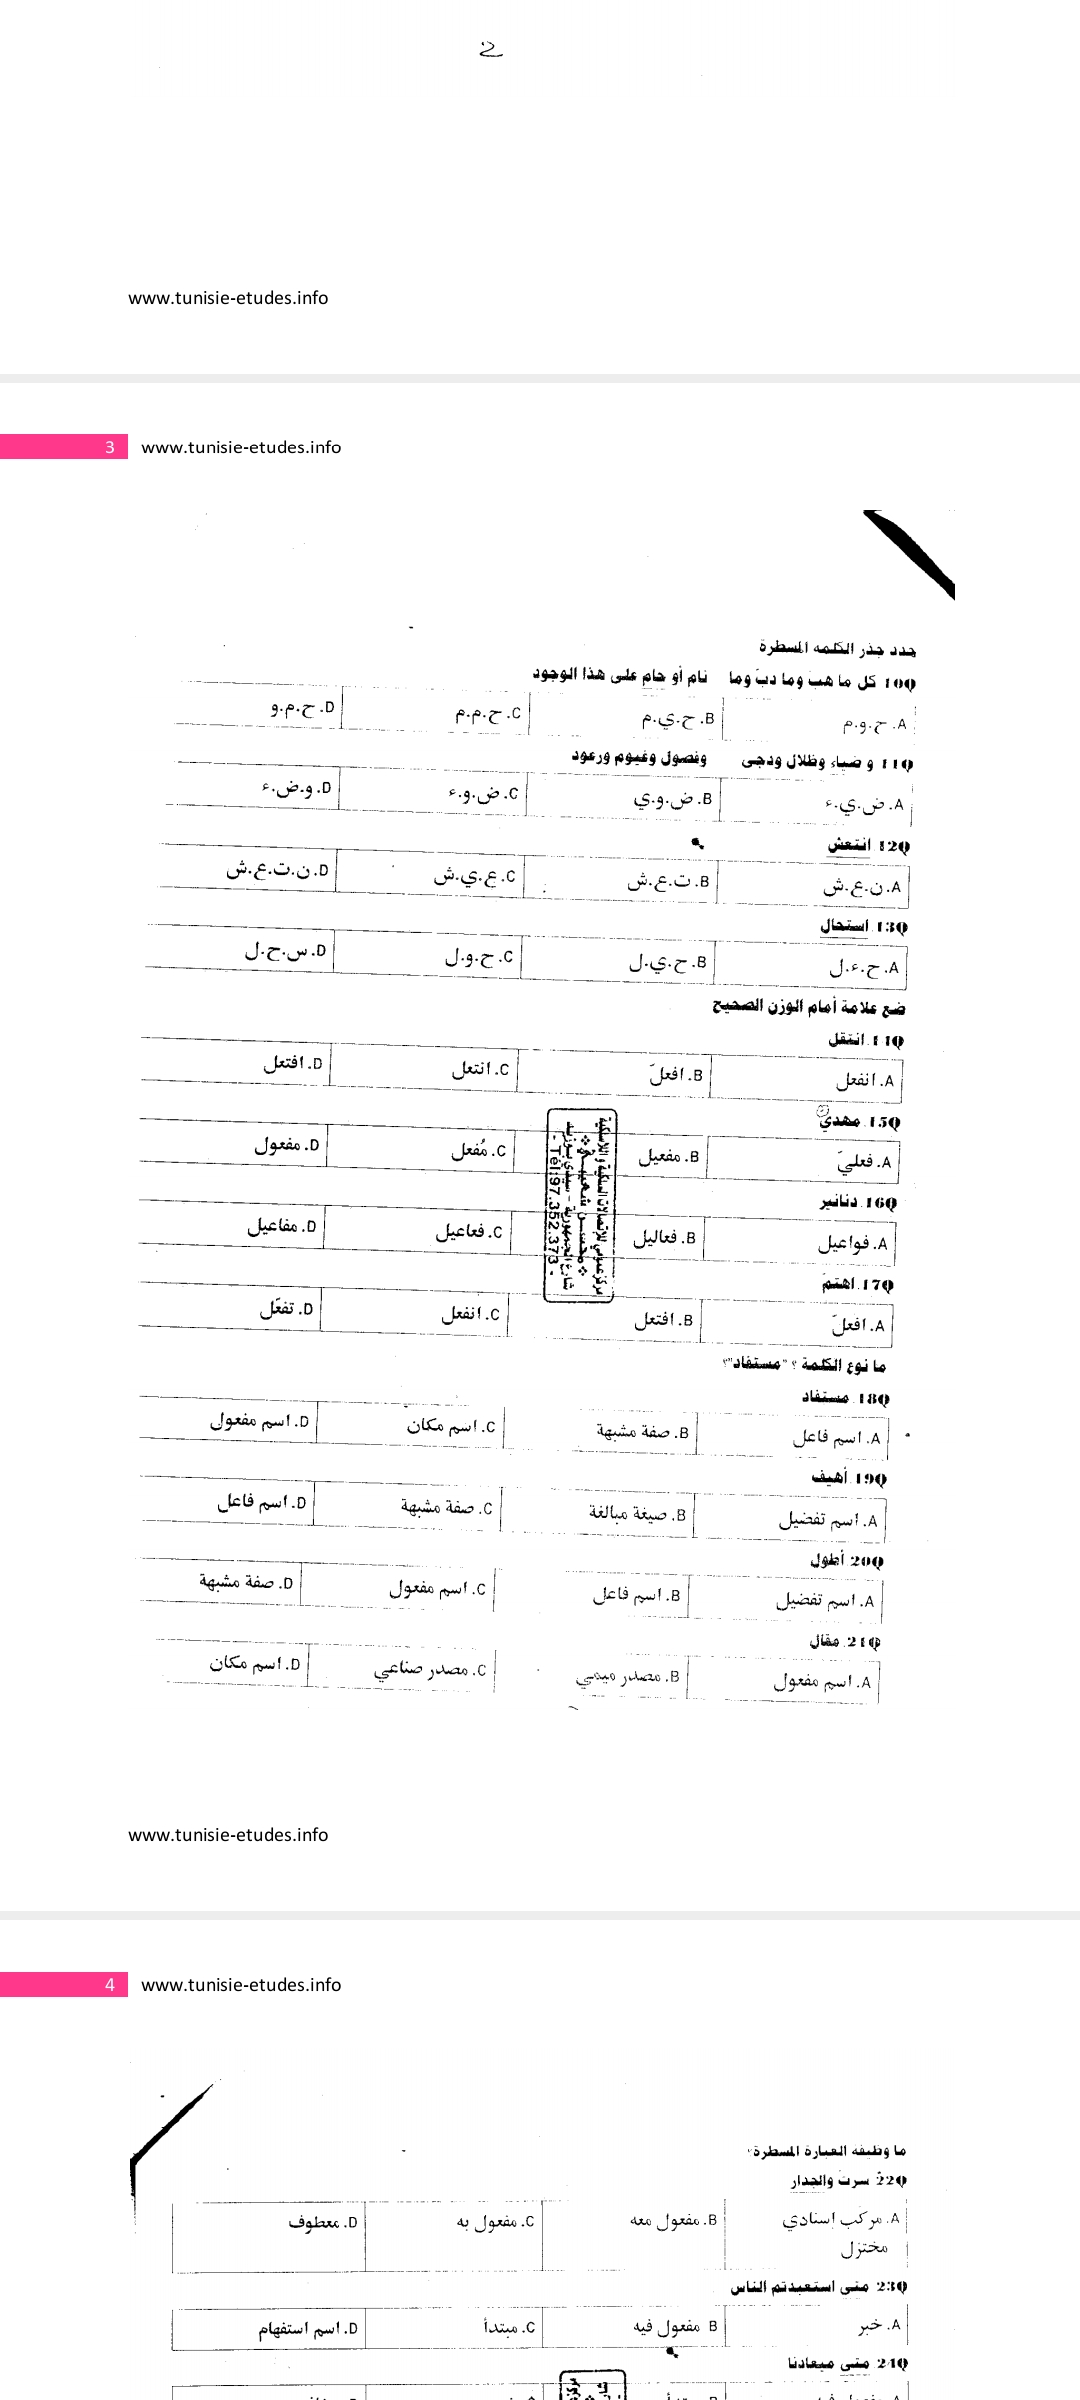 2
www.tunisie-etudes.info
3 www.tunisie-etudes.info
حدد جذر الكلمه المسطرة
10Q كل ما هبَ وما دبَ وما نام أو حام على هذا الوجود
A. ح.و.م B. ح.ي.م C. ح.م.م D. ح.م.و
11Q و ضياء وظلال ودجى وفصول وغيوم ورعود
A. ض.ي.ء B. ض.و.ي C. ض.و.ء D. و.ض.ء
12Q انتعش
A. ن.ع.ش B. ت.ع.ش C. ع.ي.ش D. ن.ت.ع.ش
13Q. استحال
A. ح.ء.ل B. ح.ي.ل C. ح.و.ل D. س.ح.ل
ضع علامة أمام الوزن الصحيح
14Q. انتقل
A. انفعل B. افعلّ C. انتعل D. افتعل
15Q. مهديّ
A. فعليّ B. مفعيل C. مُفعل D. مفعول
16Q. دنانير
A. فواعيل B. فعاليل C. فعاعيل D. مفاعيل
17Q. اهتمّ
A. افعلّ B. افتعل C. انفعل D. تفعّل
مركز عمومي للإتصالات السلكية و اللاسلكية
شارع الجمهورية - سيدي بوزيد
- Tél:97.352.373 -
ما نوع الكلمة ؟ "مستفاد"؟
18Q. مستفاد
A. اسم فاعل B. صفة مشبهة C. اسم مكان D. اسم مفعول
19Q. أهيف
A. اسم تفضيل B. صيغة مبالغة C. صفة مشبهة D. اسم فاعل
20Q أطول
A. اسم تفضيل B. اسم فاعل C. اسم مفعول D. صفة مشبهة
21Q. مقال
A. اسم مفعول B. مصدر ميمي C. مصدر صناعي D. اسم مكان
www.tunisie-etudes.info
4 www.tunisie-etudes.info
ما وظيفه العبارة المسطرة
22Q سرتُ والجدار
A. مركب إسنادي مختزل B. مفعول معه C. مفعول به D. معطوف
23Q متى استعبدتم الناس
A. خبر B مفعول فيه C. مبتدأ D. اسم استفهام
24Q متى ميعادنا